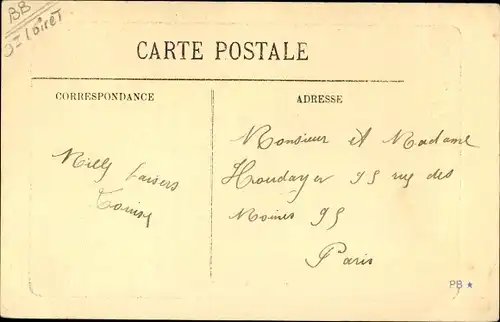 BB
Dt Loiret
CARTE POSTALE
CORRESPONDANCE
ADRESSE
Mille baisers
Louise
Monsieur et Madame
Houdayer 95 rue des
Moines 95
Paris
PB ★